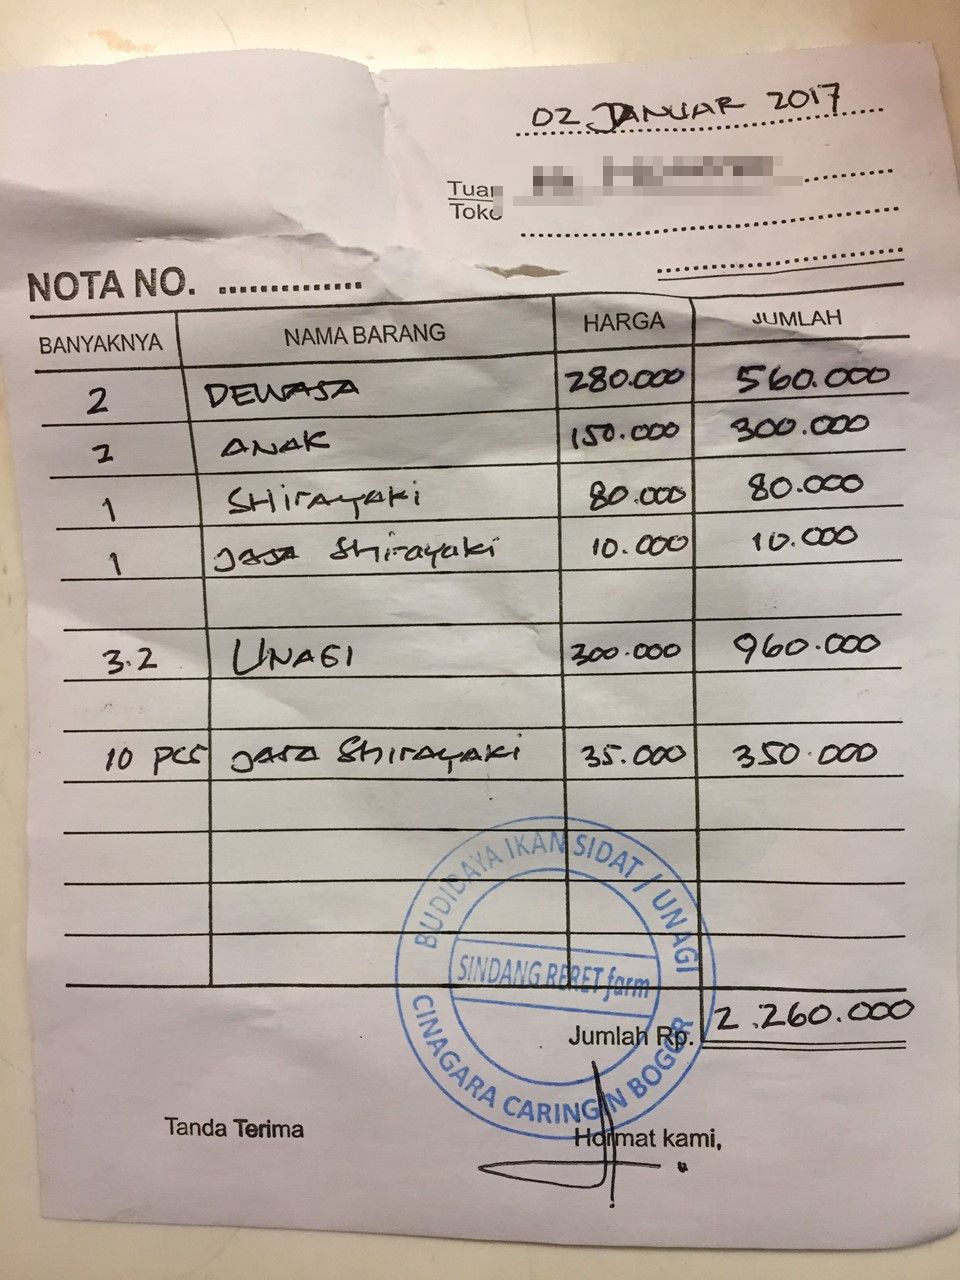 02 JANUAR 2017
Tuan
Toko
NOTA NO. ..............
BANYAKNYA NAMA BARANG HARGA JUMLAH
2 DEWASA 280.000 560.000
2 ANAK 150.000 300.000
1 SHirayaki 80.000 80.000
1 Jasa Shirayaki 10.000 10.000
3.2 UNAGI 300.000 960.000
10 pcs Jasa Shirayaki 35.000 350.000
BUDIDAYA IKAN SIDAT / UNAGI
SINDANG RERET farm
CINAGARA CARINGIN BOGOR
Jumlah Rp. 2.260.000
Tanda Terima Hormat kami,